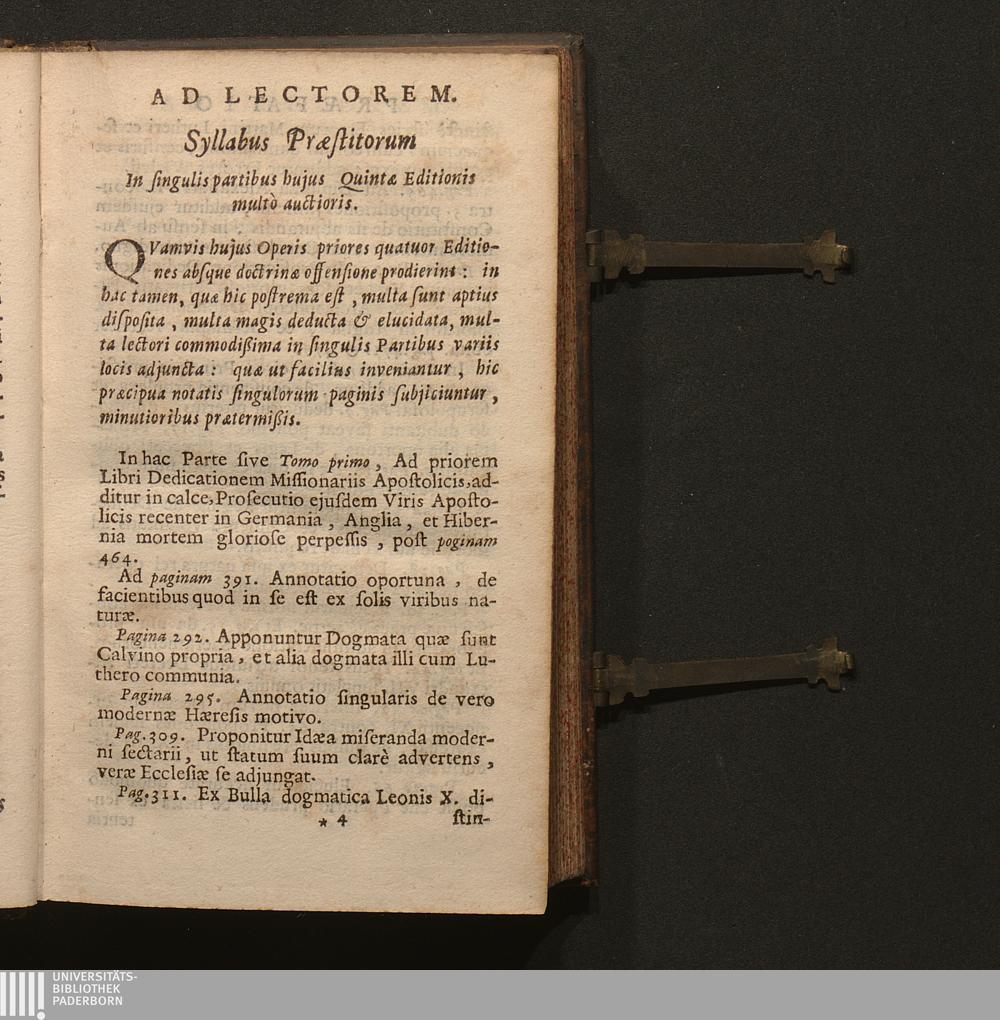 AD LECTOREM.
Syllabus Præſtitorum
In ſingulis partibus hujus Quintæ Editionis
multò auctioris.
QVamvis hujus Operis priores quatuor Editio-
nes abſque doctrinæ offenſione prodierint: in
hac tamen, quæ hic poſtrema eſt, multa ſunt aptius
diſpoſita, multa magis deducta & elucidata, mul-
ta lectori commodißima in ſingulis Partibus variis
locis adjuncta: quæ ut facilius inveniantur, hic
præcipua notatis ſingulorum paginis ſubjiciuntur,
minutioribus prætermißis.
In hac Parte ſive Tomo primo, Ad priorem
Libri Dedicationem Miſſionariis Apoſtolicis, ad-
ditur in calce, Proſecutio ejuſdem Viris Apoſto-
licis recenter in Germania, Anglia, et Hiber-
nia mortem glorioſe perpeſſis, poſt poginam
464.
Ad paginam 391. Annotatio oportuna, de
facientibus quod in ſe eſt ex ſolis viribus na-
turæ.
Pagina 292. Apponuntur Dogmata quæ ſunt
Calvino propria, et alia dogmata illi cum Lu-
thero communia.
Pagina 295. Annotatio ſingularis de vero
modernæ Hæreſis motivo.
Pag. 309. Proponitur Idæa miſeranda moder-
ni ſectarii, ut ſtatum ſuum clarè advertens,
veræ Eccleſiæ ſe adjungat.
Pag. 311. Ex Bulla dogmatica Leonis X. di-
* 4 ſtin-
UNIVERSITÄTS-
BIBLIOTHEK
PADERBORN